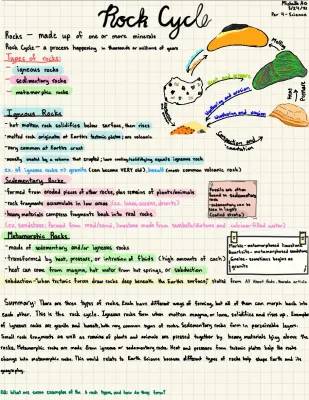 Rock Cycle
Michelle
Per 4 - Science
Rocks - made up of one or more minerals
Rock Cycle - a process happening in thousands or millions of years
Types of rocks:
- igneous rocks
- sedimentary rocks
- metamorphic rocks
Melting
Heat and pressure
Heat
Pressure
Weathering and erosion
Weathering and erosion
Compaction and
cementation
Igneous Rocks
- hot molten rock solidifies below surface, then rises
- melted rock originates at Earth's tectonic plates; are volcanic
- very common of Earth's crust
ex. of igneous rocks => granite (can become VERY old), basalt (most common volcanic rock)
Sedimentary Rocks
- formed from eroded pieces of other rocks, plus remains of plants/animals
- rock fragments accumulate in low areas (i.e. lakes, oceans, deserts)
- heavy materials compress fragments back into real rocks
Fossils are often
found in sedimentary
rocks
- sedimentary can be
seen in layers
(called strata)
Metamorphic Rocks
- made of sedimentary and/or igneous rocks
- transformed by heat, pressure, or intrusion of fluids (high amounts of each)
- heat can come from magma, hot water from hot springs, or subduction
Marble - metamorphosed limestone
Quartzite - metamorphosed sandstone
Gneiss - sometimes begins as
granite
Summary: There are three types of rocks. Each have different ways of forming, but all of them can morph back into
each other. This is the rock cycle. Igneous rocks form when molten magma, or lava, solidifies and rises up. Example
of igneous rocks are granite and basalt, both very common types of rocks. Sedimentary rocks form in
Small rock fragments as well as remains of plants and animals are pressed together by heavy materials lying above the
rocks. Metamorphic rocks are made from igneous or sedimentary rocks. Heat and pressure from tectonic plates help the rocks
change into metamorphic rocks. This would relate to Earth Science because different types of rocks help shape Earth and its
geography.
EQ: What are some examples of the 3 rock types, and how do they form?